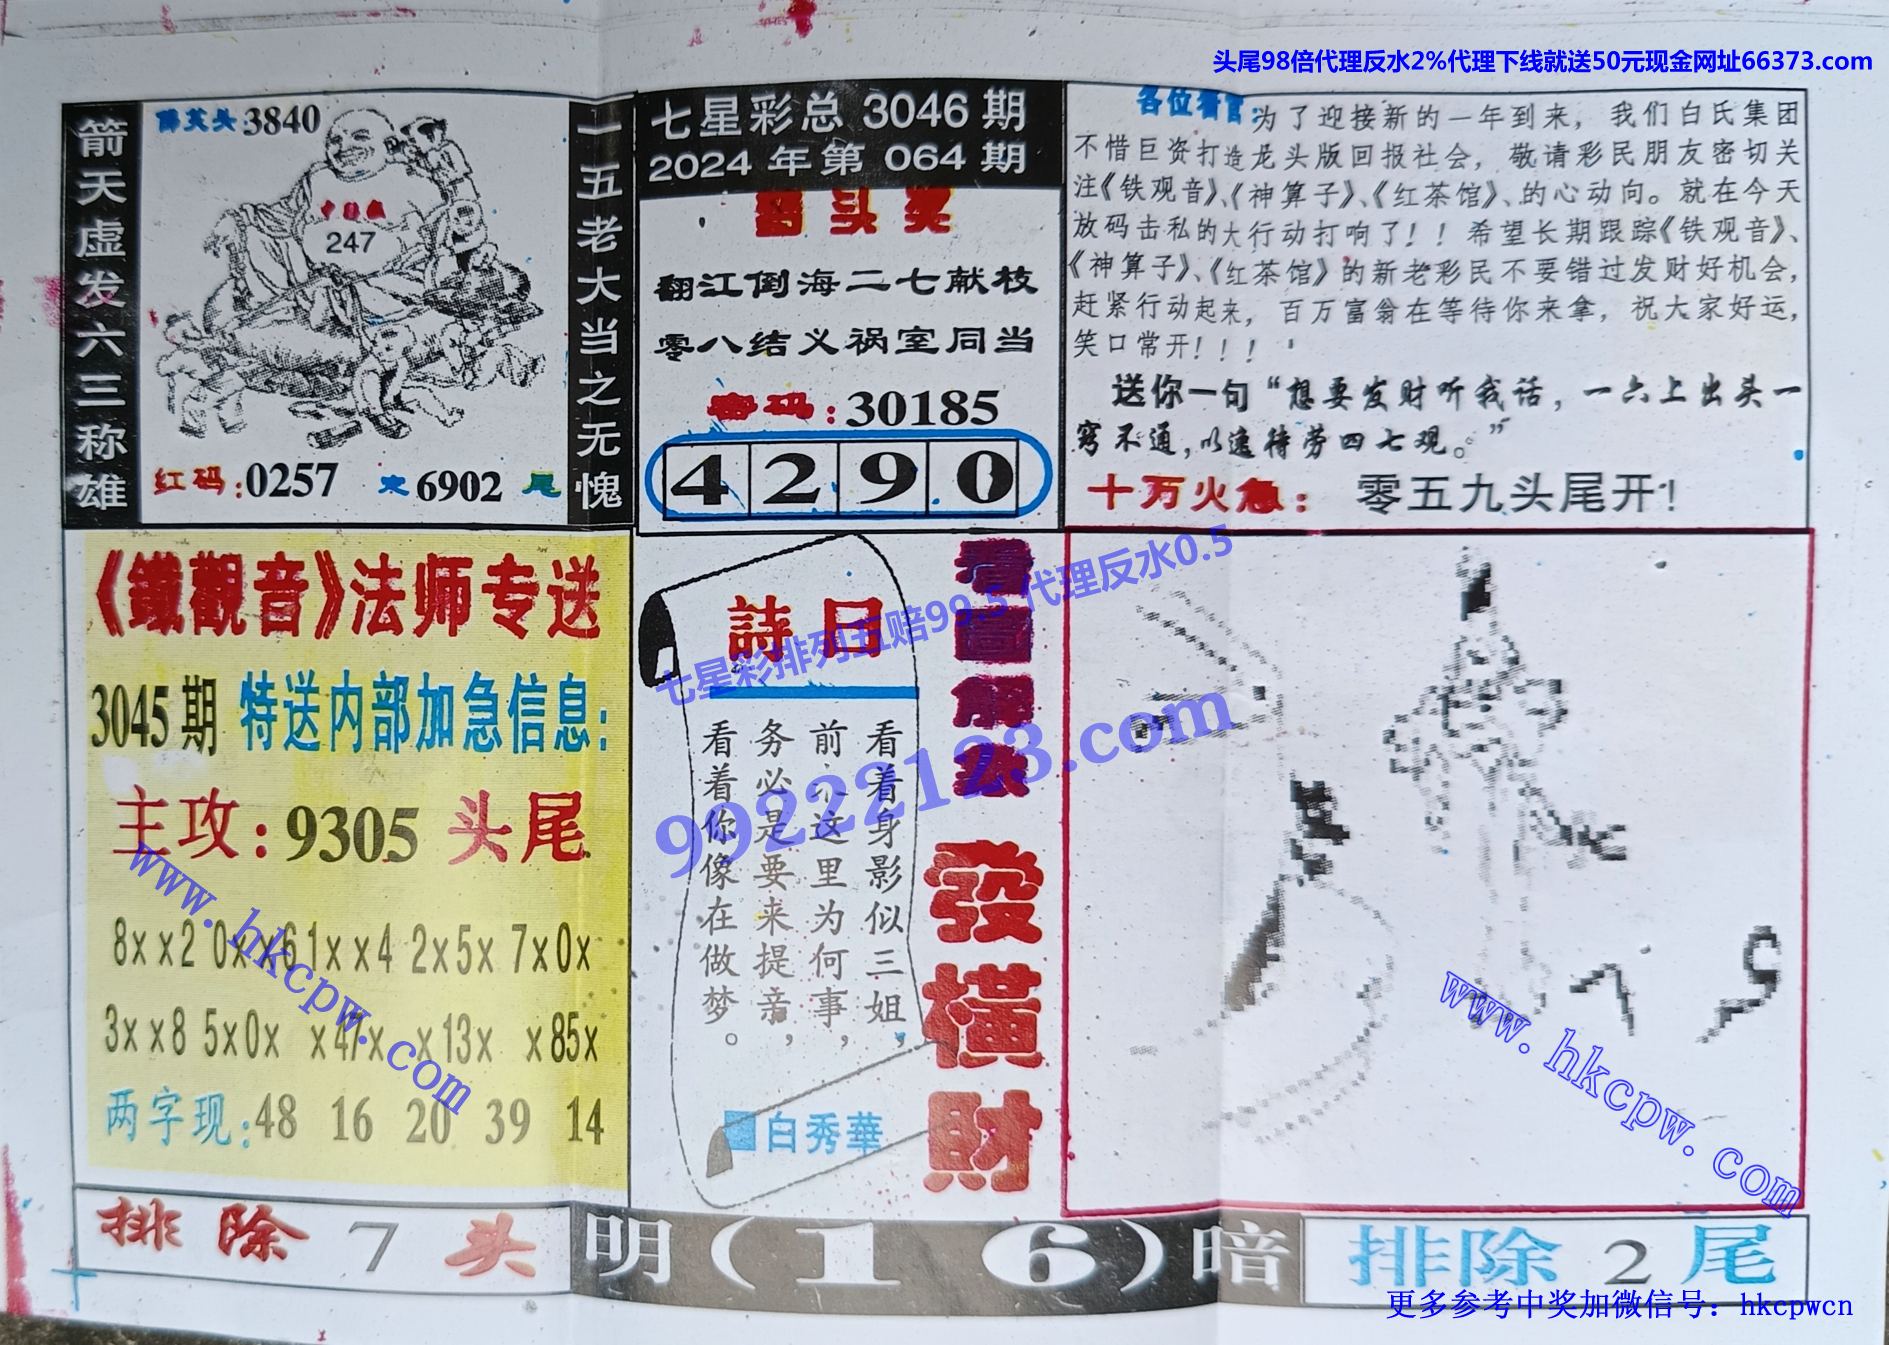 头尾98倍代理反水2%代理下线就送50元现金网址66373.com
箭天虚发六三称雄
3840
247
红码:0257
6902 尾
一五老大当之无愧
七星彩总 3046 期
2024 年第 064 期
头奖
翻江倒海二七献枝
零八结义祸室同当
密码:30185
4 2 9 0
各位看官:为了迎接新的一年到来，我们白氏集团
不惜巨资打造龙头版回报社会，敬请彩民朋友密切关
注《铁观音》、《神算子》、《红茶馆》、的心动向。就在今天
放码击私的大行动打响了！！希望长期跟踪《铁观音》、
《神算子》、《红茶馆》的新老彩民不要错过发财好机会，
赶紧行动起来，百万富翁在等待你来拿，祝大家好运，
笑口常开！！！
送你一句“想要发财听我话，一六上出头一
窍不通，以逸待劳四七观。”
十万火急：零五九头尾开！
《鐵觀音》法师专送
3045期 特送内部加急信息:
主攻:9305 头尾
8xx2 0xx6 1xx4 2x5x 7x0x
3xx8 5x0x x47x x13x x85x
两字现:48 16 20 39 14
詩曰
看着身影似三姐，
前来这里为何事，
务必是要来提亲，
看着你像在做梦。
白秀華
看圖解玄
發橫財
七星彩排列五赔99.5 代理反水0.5
99222123.com
www.hkcpw.com
www.hkcpw.com
排除 7 头
明(16)暗
排除 2 尾
更多参考中奖加微信号：hkcpwcn